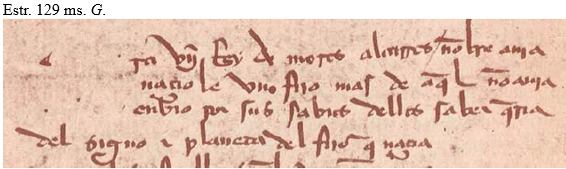 Estr. 129 ms. G.
vn Rey de moros nōbre auia
nacio le vno fijo mas de aq̄l nō auia
enbio por sus sabios dellos saber q̄ria
del signo e planeta del fijo q̄ nacia